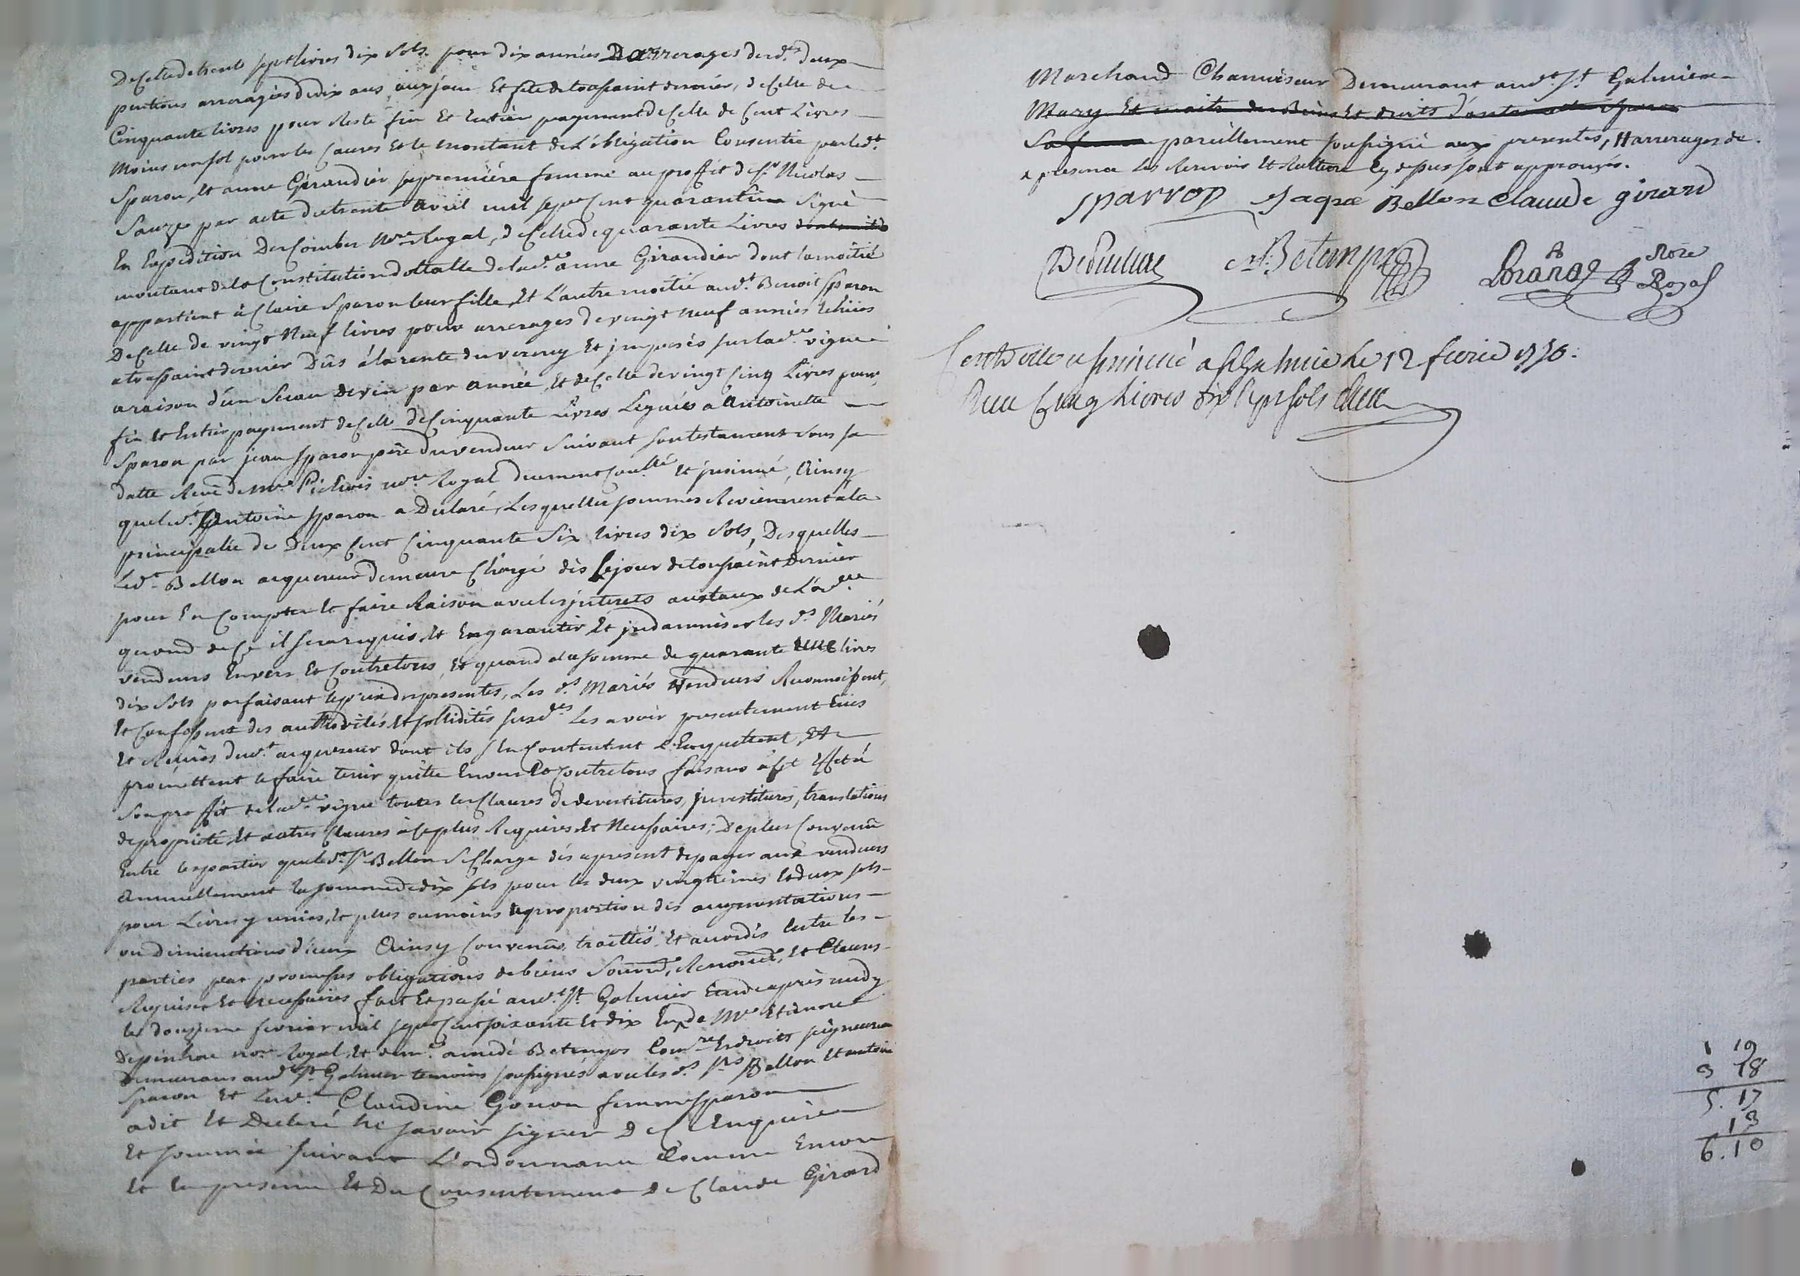 De celle de trente sept livres dix sols pour dix années D'arrerages desd.ts deux
pentions arrerages de dix ans aux jour Et fete de toussaint dernier, de celle de
Cinquante livres pour Reste fin Et Entier payement de celle de Cent Livres
Moins un sol pour les Causes Et le montant de L'obligation Consentie par led.t
Sparon, Et anne Girandier sa premiére femme au proffit de s.r Nicolas
Sauze par acte du trente avril mil sept Cent quarante Signé
En Expedition Descombes No.re Royal, de Celle de quarante Livres
montant de la Constitution dottalle de lad.e anne Girandier dont la moitié
appartient à Claire Sparon leur fille, Et L'autre moitié aud.t Benoit Sparon
De Celle de vingt Neuf livres pour arrerages de vingt neuf années Echües
a toussaint dernier Dûs à la rente du verney Et imposés sur lad.e vigne
a raison d'un Seau de vin par année, Et de Celle de vingt Cinq Livres pour
fin Et Entier payement de Celle de Cinquante Livres Legués a Antoinette
Sparon par jean Sparon père du vendeur Suivant son testament sous sa
datte Reçu de M.e no.re Royal duement Con.llé Et insinué, Ainsy
que led.t Antoine Sparon a Declaré, Lesquelles sommes Reviennent à la
principalle de Deux Cent Cinquante Six livres dix Sols, Desquelles
Led.t Bellon acquereur demeure Chargé dès Le jour de toussaint Dernier
pour En Compter Et faire Raison avec les interets aux taux de L'od.ce
quand de Ce il sera requis, Et En garantir Et indamniser les d.s Mariés
vendeurs Envers Et Contre tous, Et quand a la somme de quarante une livres
dix Sols parfaisant le prix des presentes, Les d.s Mariés Vendeurs Reconnoissent,
Et Confessent des authorités, Et sollidités susd.es Les avoir presentement Eües
Et Reçues dud.t acquereur dont ils s'En Contentent L'En quittent, Et
promettent le faire tenir quitte Envers Et Contre tous faisant à Cet Effet à
Son proffit de lad.e vigne toutes les Clauses de devestitures, investitures, translations
de proprieté, Et autres Clauses à Ce plus Requises Et Necessaires; De plus Convenû
Entre les parties que led.t s.r Bellon Se Charge dés a present de payer aux vendeurs
Annuellement la somme de dix sols pour les deux vingtiemes Et deux sols
pour Livres y unies, Et plus ou moins a proportion des augmentations
ou diminutions d'iceux Ainsy Convenûs, traittés, Et accordés Entre les
parties par promesses obligations de biens Soum.on, Renonc.on, Et Clauses
Requises Et Necessaires fait Et passé aud.t S.t Galmier Etude après midy
le douzieme fevrier mil sept Cent soixante Et dix En pr.ce de M.e Etienne
Depinhac no.re Royal, Et de m.e amedé Betemps Com.re En droits seigneuriaux
Demeurans aud.t S.t Galmier temoins soussignés avec les d.s s.rs Bellon Et antoine
Sparon Et lad.e Claudine Gonon femme Sparon
a dit Et Declaré Ne Savoir signer De Ce Enquise
Et sommée suivant L'ordonnance Comme Encore
Et En presence Et Du Consentement De Claude Girard
Marchand Chanvreur Demeurant aud.t S.t Galmier
pareillement soussigné aux presentes, Harrerages de.
presence Les Renvois Et Rature Cy dessus sont approuvés.
Sparron Jaque Bellon Claude girard
Betemps
Cont.le et insinué a S.t Galmier Le 12 fevrier 1770.
Reçu Cinq Livres dix sept sols
1 19
3 18
5.17
13
6.10